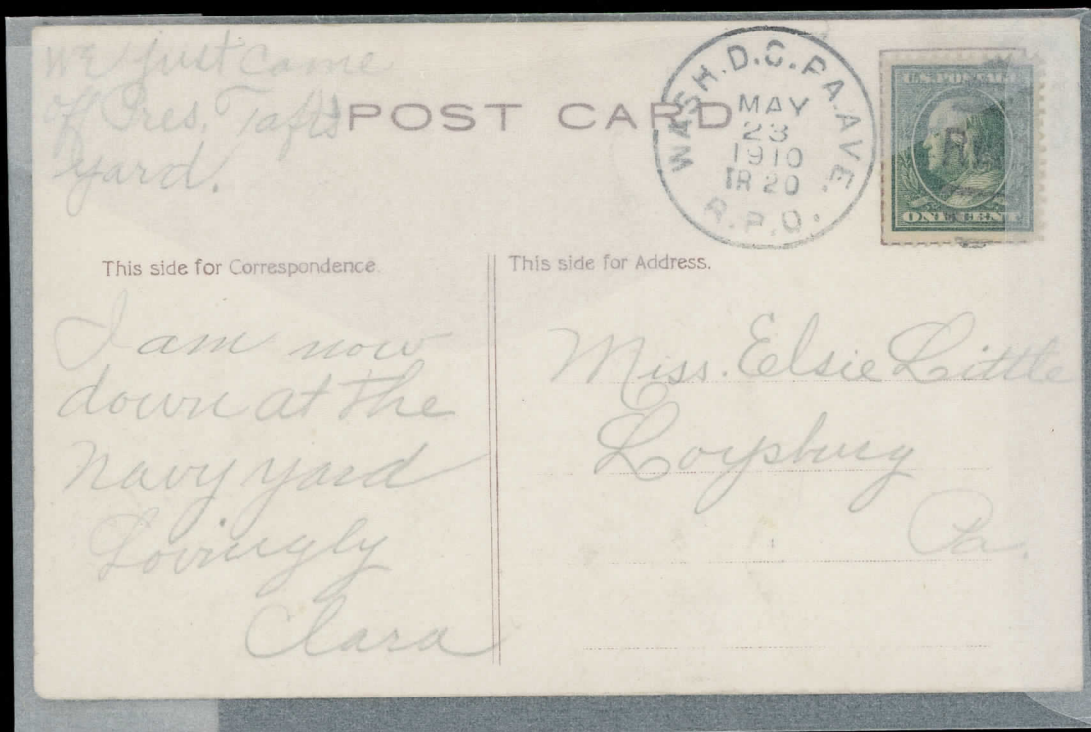 We just came
off Pres. Tafts
yard.
POST CARD
WASH. D.C. PA. AVE.
MAY
23
1910
TR 20
R.P.O.
U.S. POSTAGE
ONE CENT
This side for Correspondence.
This side for Address.
I am now
down at the
Navy yard
Lovingly
Clara
Miss. Elsie Little
Loysburg
Pa.